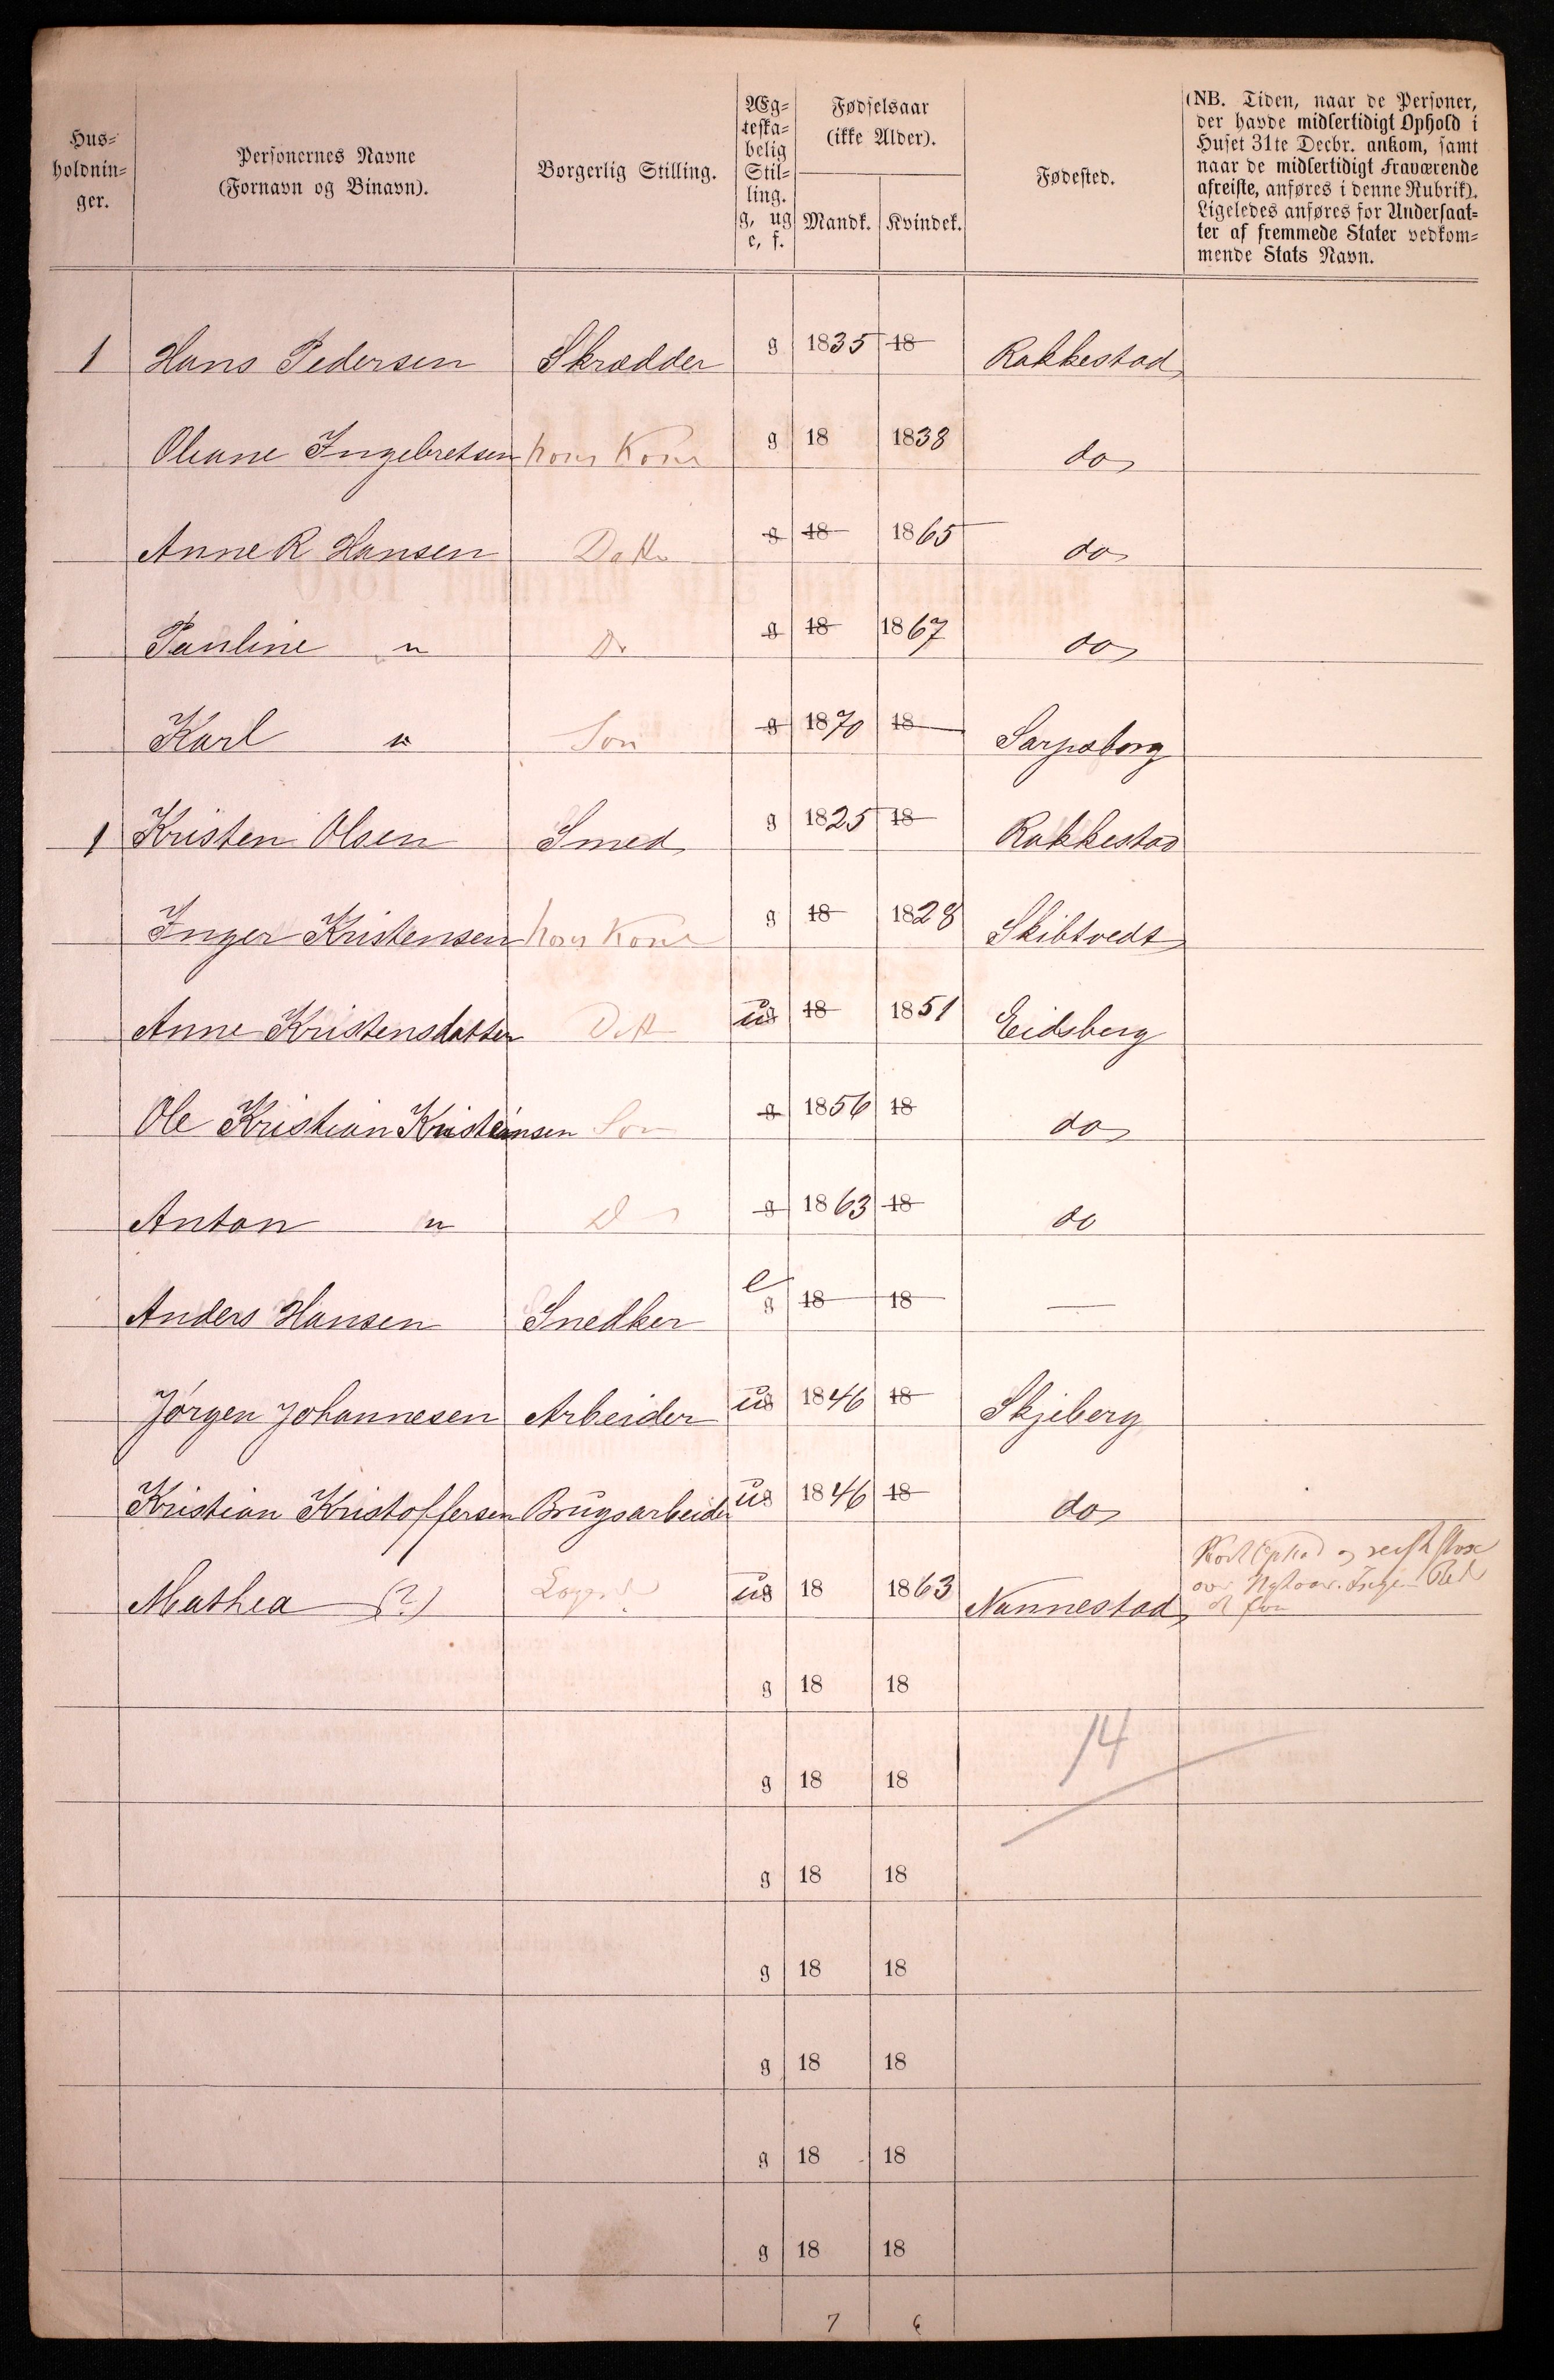 Hus-
holdnin-
ger.
Personernes Navne
(Fornavn og Binavn).
Borgerlig Stilling.
Æg-
teska-
belig
Stil-
ling.
g, ug
e, f.
Fødselsaar
(ikke Alder).
Mandk. Kvindek.
Fødested.
(NB. Tiden, naar de Personer,
der havde midlertidigt Ophold i
Huset 31te Decbr. ankom, samt
naar de midlertidigt fraværende
afreiste, anføres i denne Rubrik).
Ligeledes anføres for Undersaat-
ter af fremmede Stater vedkom-
mende Stats Navn.
1 Hans Pedersen Skrædder g 1835 18 Rakkestad
Oleane Ingebretsen hans Kone g 18 1838 do
Anne R Hansen Datt g 18 1865 do
Pauline " Do g 18 1867 do
Karl " Søn g 1870 18 Sarpsborg
1 Kristen Olsen Smed g 1825 18 Rakkestad
Inger Kristensen hans Kone g 18 1828 Skibtvedt
Anne Kristensdatter Datt ug 18 1851 Eidsberg
Ole Kristian Kristensen Søn g 1856 18 do
Anton " D g 1863 18 do
Anders Hansen Snedker e g 18 18 —
Jørgen Johannesen Arbeider ug 1846 18 Skjeberg
Kristian Kristoffersen Brugsarbeider ug 1846 18 do
Mathea (?) ug 18 1863 Nannestad
g 18 18
g 18 18
14
g 18 18
g 18 18
g 18 18
g 18 18
g 18 18
7 6